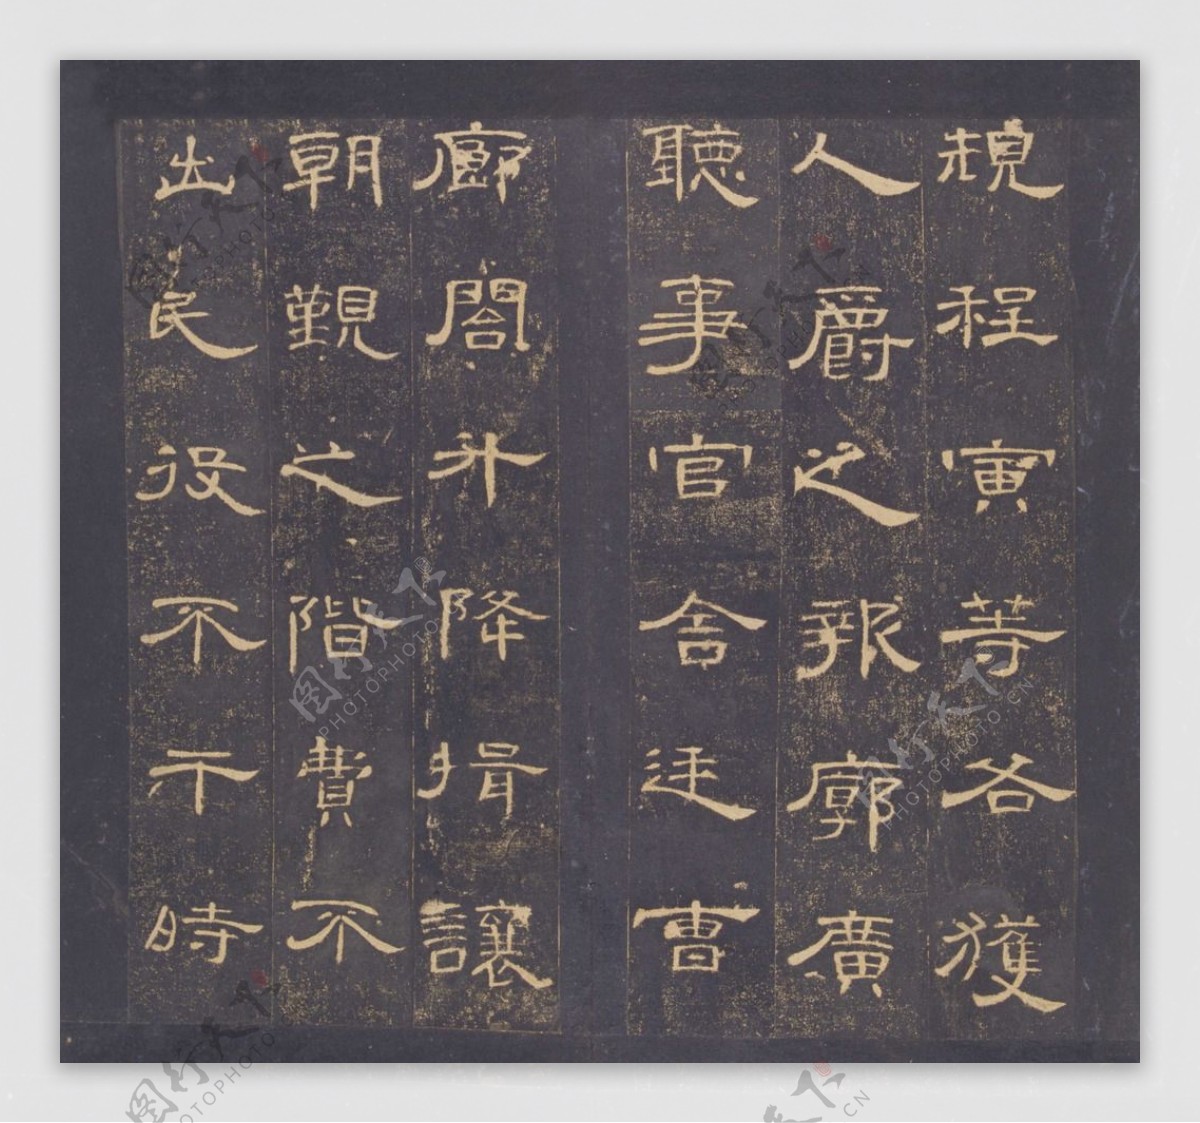 規程寅等各獲
人爵之報廓廣
聽事官舍廷曹
廊閤升降揖讓
朝覲之階費不
出民役不干時
图行天下
PHOTOPHOTO.CN